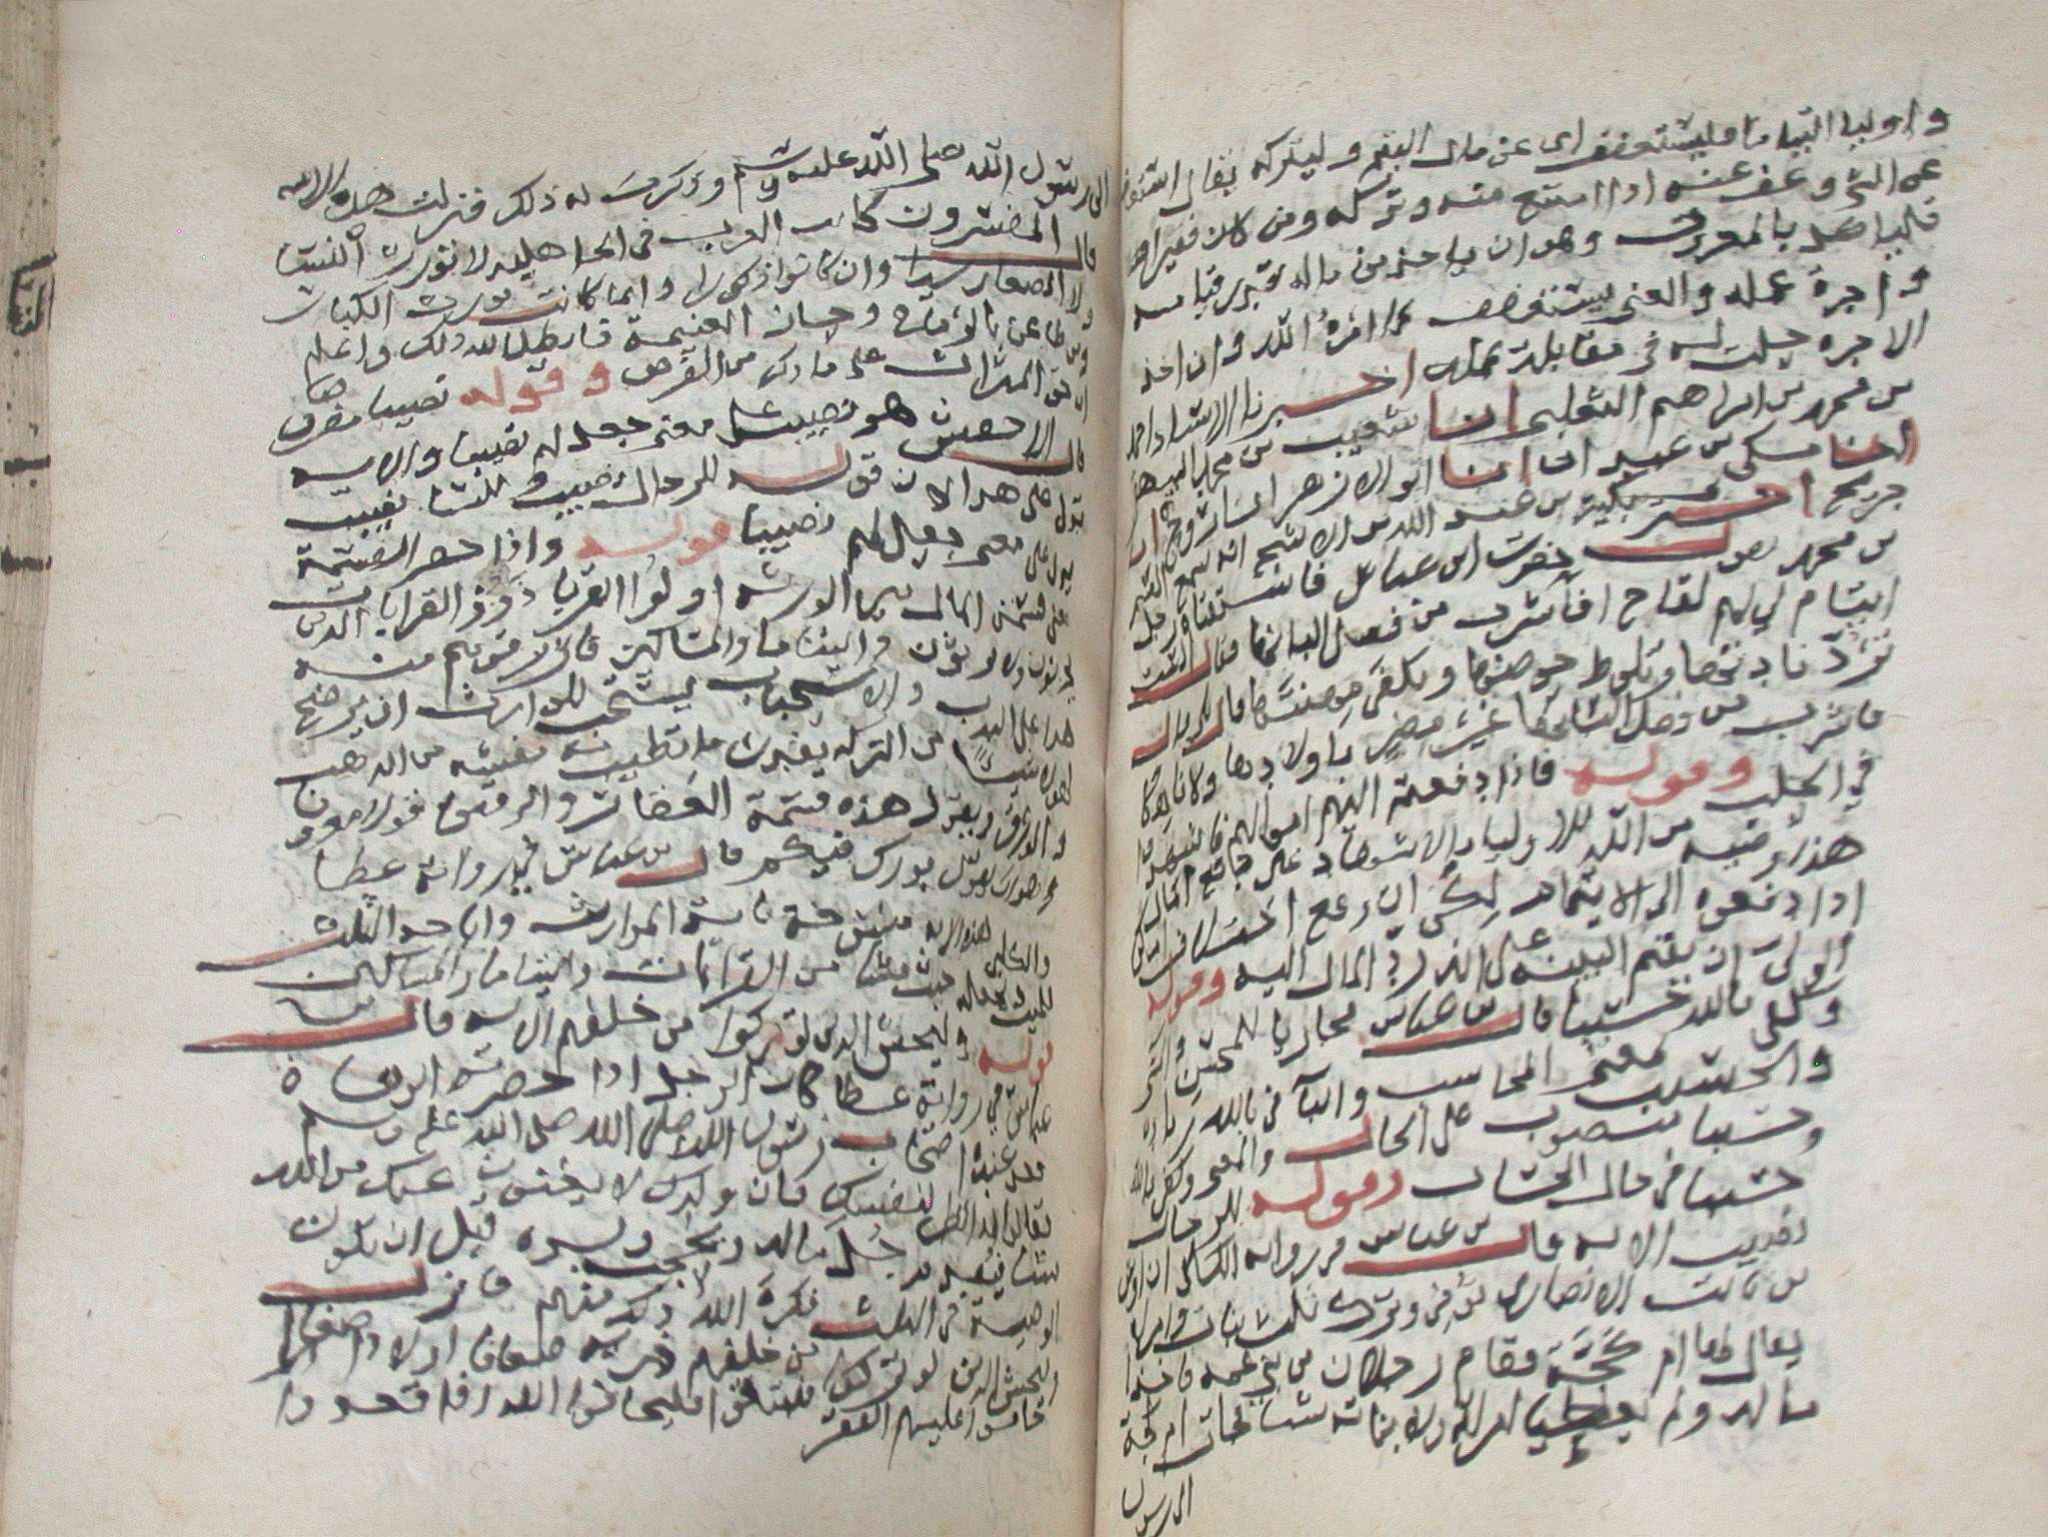 واوليا اليتاما فليستعفف اى عن مال اليتيم وليتركه يقال استعف
عن الشى وعف عنه اذا امتنع منه وتركه ومن كان فقيرا
فلياكل بالمعروف وهو ان ياخذ من ماله بقدر قيامه
واجرة عمله والغنى يستعفف كما امره الله وان اخذ
الاجره جعلت له فى مقابلة عمله اخبرنا الاستاد احمد
بن محمد بن ابراهيم الثعلبى انا شعيب بن محمد البيهقى
انا مكى بن عبدان انا ابو الازهر انا روح
جريج
بن محمد يقول حضرت ابن عباس فاستفتاه رجل
ايتام لى لهم لقاح افاشرب من فضل البانها فقال الست
ترد نادتها وتلوط حوضها وتكفى مهنتها قال بلى قال
فاشرب من فضل البانها غير مضر باولادها ولا ناهكا
فى الحلب وقوله فاذا دفعتم اليهم اموالهم فاشهدوا
هذه وصيه من الله للاوليا والاشهاد على دفع المال
اذا دفعوه الى الايتام لكى ان وقع اختلاف امكن
الولى ان يقيم البينه على انه رد المال اليه وقوله
وكفى بالله حسيبا قال بن عباس مجازيا للمحسن والمسى
والحسيب بمعنى المحاسب والبا فى بالله زياده
وحسيبا منصوب على الحال والمعنى وكفى بالله
حسيبا فى حال الحساب وقوله للرجال
نصيب الايه قال بن عباس فى روايه الكلبى ان اوس
بن ثابت الانصارى توفى وترك ثلث بنات وامراه
يقال لها ام كجة فقام رجلان من بنى عمه فاخذا
ماله ولم يعطيا امراته ولا بناته شيا فجات ام كجة
الى رسول
الى رسول الله صلى الله عليه وسلم وذكرت له ذلك فنزلت هذه الايه
قال المفسرون كانت العرب فى الجاهليه لا تورث النسا
ولا الصغار شيا وان كانوا ذكورا وانما كانت تورث الكبار
ومن طاعن بالرماح وحاز الغنيمة فابطل الله ذلك واعلم
ان حق الميراث على ما ذكر من الفرض وقوله نصيبا مفروضا
قال الاخفش هو نصيب على معنى جعل لهم نصيبا والايه
تدل على هذا لان قوله للرجال نصيب وللنسا نصيب
يدل على معنى جعل لهم نصيبا قوله واذا حضر القسمة
يعنى قسمة المال بين الورثه اولوا القربا ذوو القرابا الذين
يحزنون ولا يرثون واليتاما والمساكين فارزقوهم منه
هذا على الندب والاستحباب يستحب للوارث ان يرضخ
لهولا شيا من التركه بقدر ما تطيب نفسه من الذهب
والورق ويعزل هذه قسمة وقولا معروفا
هو ان يقول بورك فيكم قال بن عباس فى رواية عطا
والكلبى هذه الايه منسوخة باية المواريث واباحه الثلث
للميت يجعله حيث شا من القرابات واليتاما والمساكين
قوله وليخش الذين لو تركوا من خلفهم الايه قال بن
عباس فى رواية عطا كان الرجل اذا حضرته الوفاة
قعد عنده اصحاب رسول الله صلى الله عليه وسلم
فقال انظر لنفسك فان ولدك لا يغنون عنك من الله
شيا فيقدم جل ماله ويحجب ولده قبل ان تكون
الوصية فى الثلث فكره الله ذلك منهم فانزل
وليخش الذين لو تركوا من خلفهم ذريه ضعافا اولادا صغارا
خافوا عليهم الفقر فليتقوا فليخافوا الله اذا قعدوا